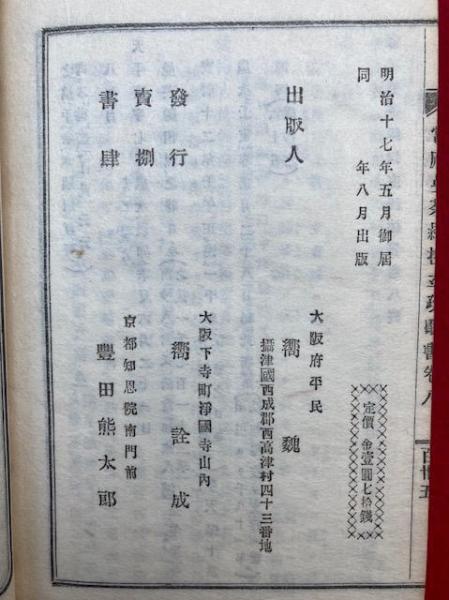 明治十七年五月御届
同　　年八月出版
定價金壹圓七拾錢
出版人
大阪府平民
嚮　魏
攝津國西成郡西高津村四十三番地
發行
大阪下寺町淨國寺山內
嚮　詮成
賣捌
書肆
京都知恩院南門前
豐田熊太郎
百廿五